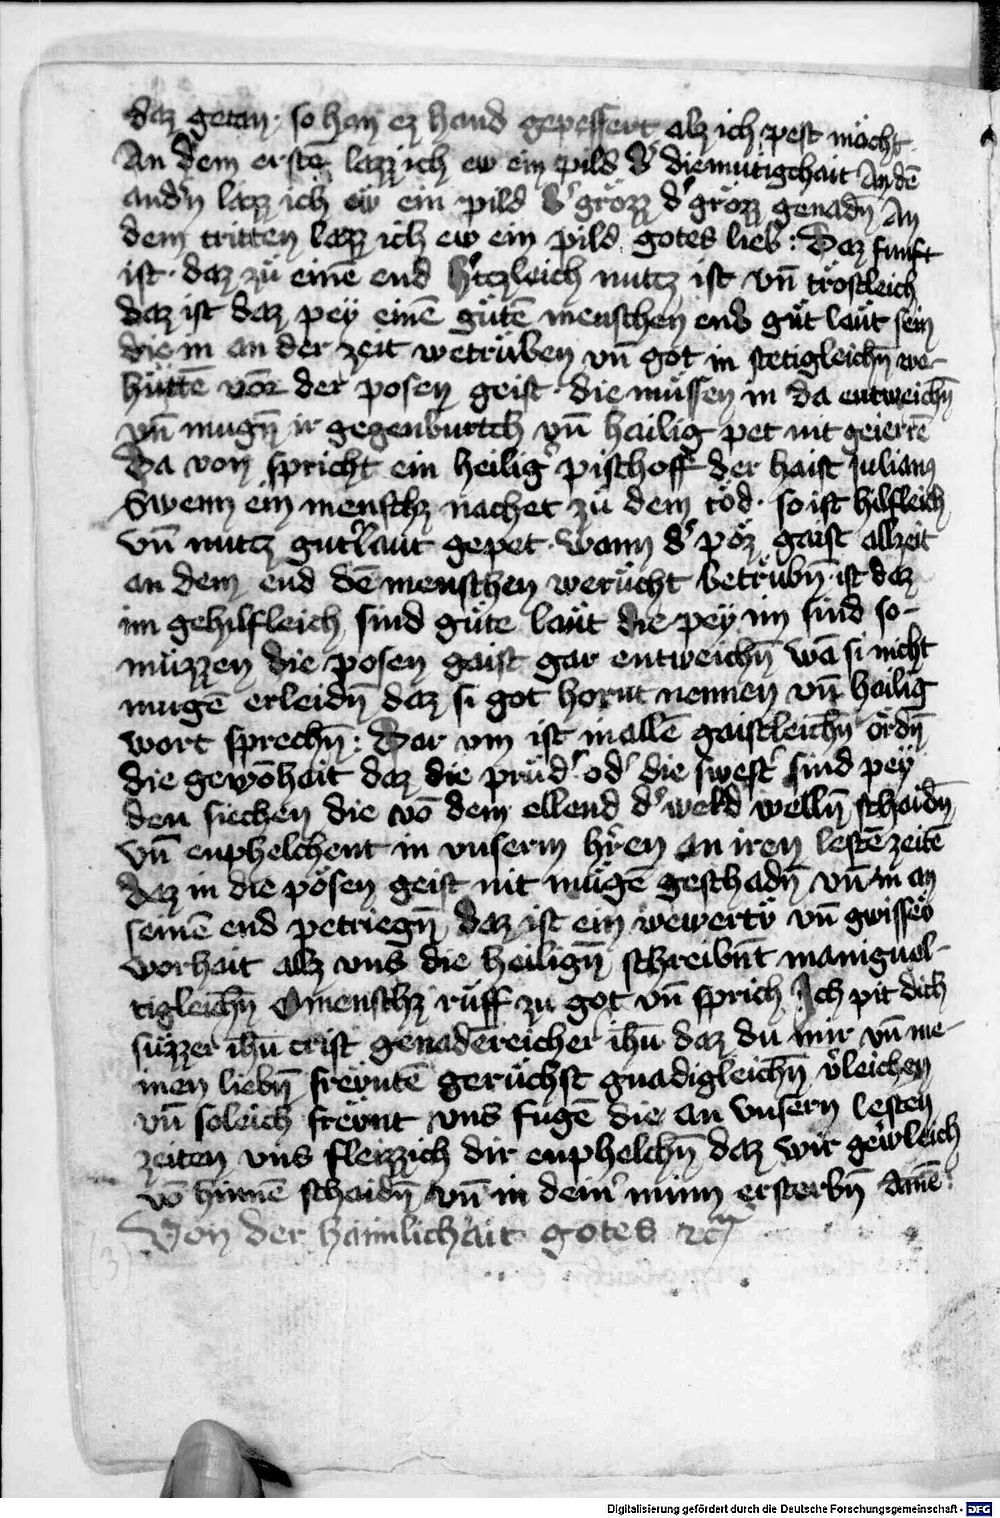 daz getan · so han ez hand gepessert alz ich pest mocht ·
An dem erstē lazz ich ew ein pild d' diemutigchait An dē
and'n lazz ich ew ein pild d' grözz d' grözz genadn̄ An
dem tritten lazz ich ew ein pild gotes lieb : Daz funft
ist · daz zu einē end h'tzleich nutz ist vn̄ tröstleich
daz ist daz pey einē gutē menschen end gut laut sein
die in an der zeit wetruben vn̄ got in stetigleichn̄ we-
huttē vor der posen geist · die mussen in da entweichn̄
vn̄ mugn̄ ir gegenburtch vn̄ hailig pet nit geierrē
Da von spricht ein heilig' pischoff der haist Julian9
Swenn ein menschz nachet zu dem tod · so ist hilfleich
vn̄ nutz gut' laut gepet · wann d' pöz gaist allzeit
an dem end dē menschen werucht betrubn̄ · ist daz
im gehilfleich sind gute laut die pey im sind so-
muzzen die posen gaist gar entweichn̄ wā si nicht
mugē erleidn̄ daz si got hornt nennen vn̄ heilig
wort sprechn̄ : Dar vm ist in allē gaistleichn̄ ordn̄
die gewōhait daz die prud' od' die swest' sind pey
den siechen die vō dem ellend d' weld welln̄ schaidn̄
vn̄ enphelchent in vnserm h'ren an iren lestē zeitē
daz in die pösen geist nit mugē geschadn̄ vn̄ in an
seinē end petriegn̄ daz ist ein wewertv vn̄ gwissev
worhait alz vns die heilign̄ schreibn̄t maniguel-
tigleichn̄ O menschz ruff zu got vn̄ sprich Ich pit dich
suzzer ihū crist genadēreicher ihū daz du mir vn̄ me-
inen liebn̄ frewntē geruchst gnadigleichn̄ v'leichen
vn̄ soleich frewnt vns fugē die an vnsern lesten
zeiten vns fleizzich dir enphelchn̄ daz wir gewleich
vō hinnē schaidn̄ vn̄ in dein' minn ersterbn̄ Amē :
Von der haimlichait gotes
Digitalisierung gefördert durch die Deutsche Forschungsgemeinschaft - DFG